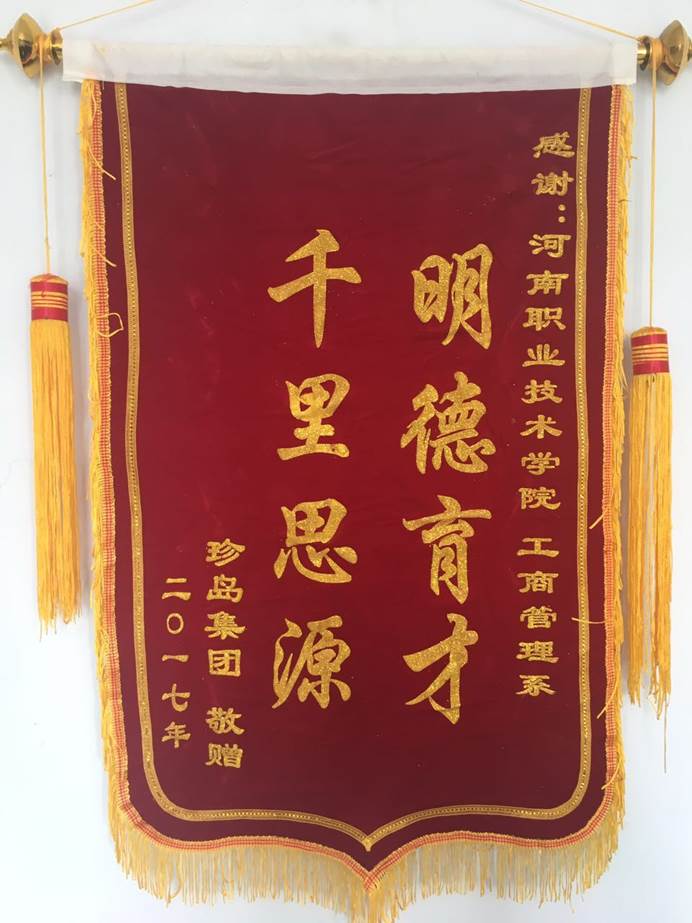 感谢：河南职业技术学院 工商管理系
明德育才
千里思源
珍岛集团 敬赠
二〇一七年